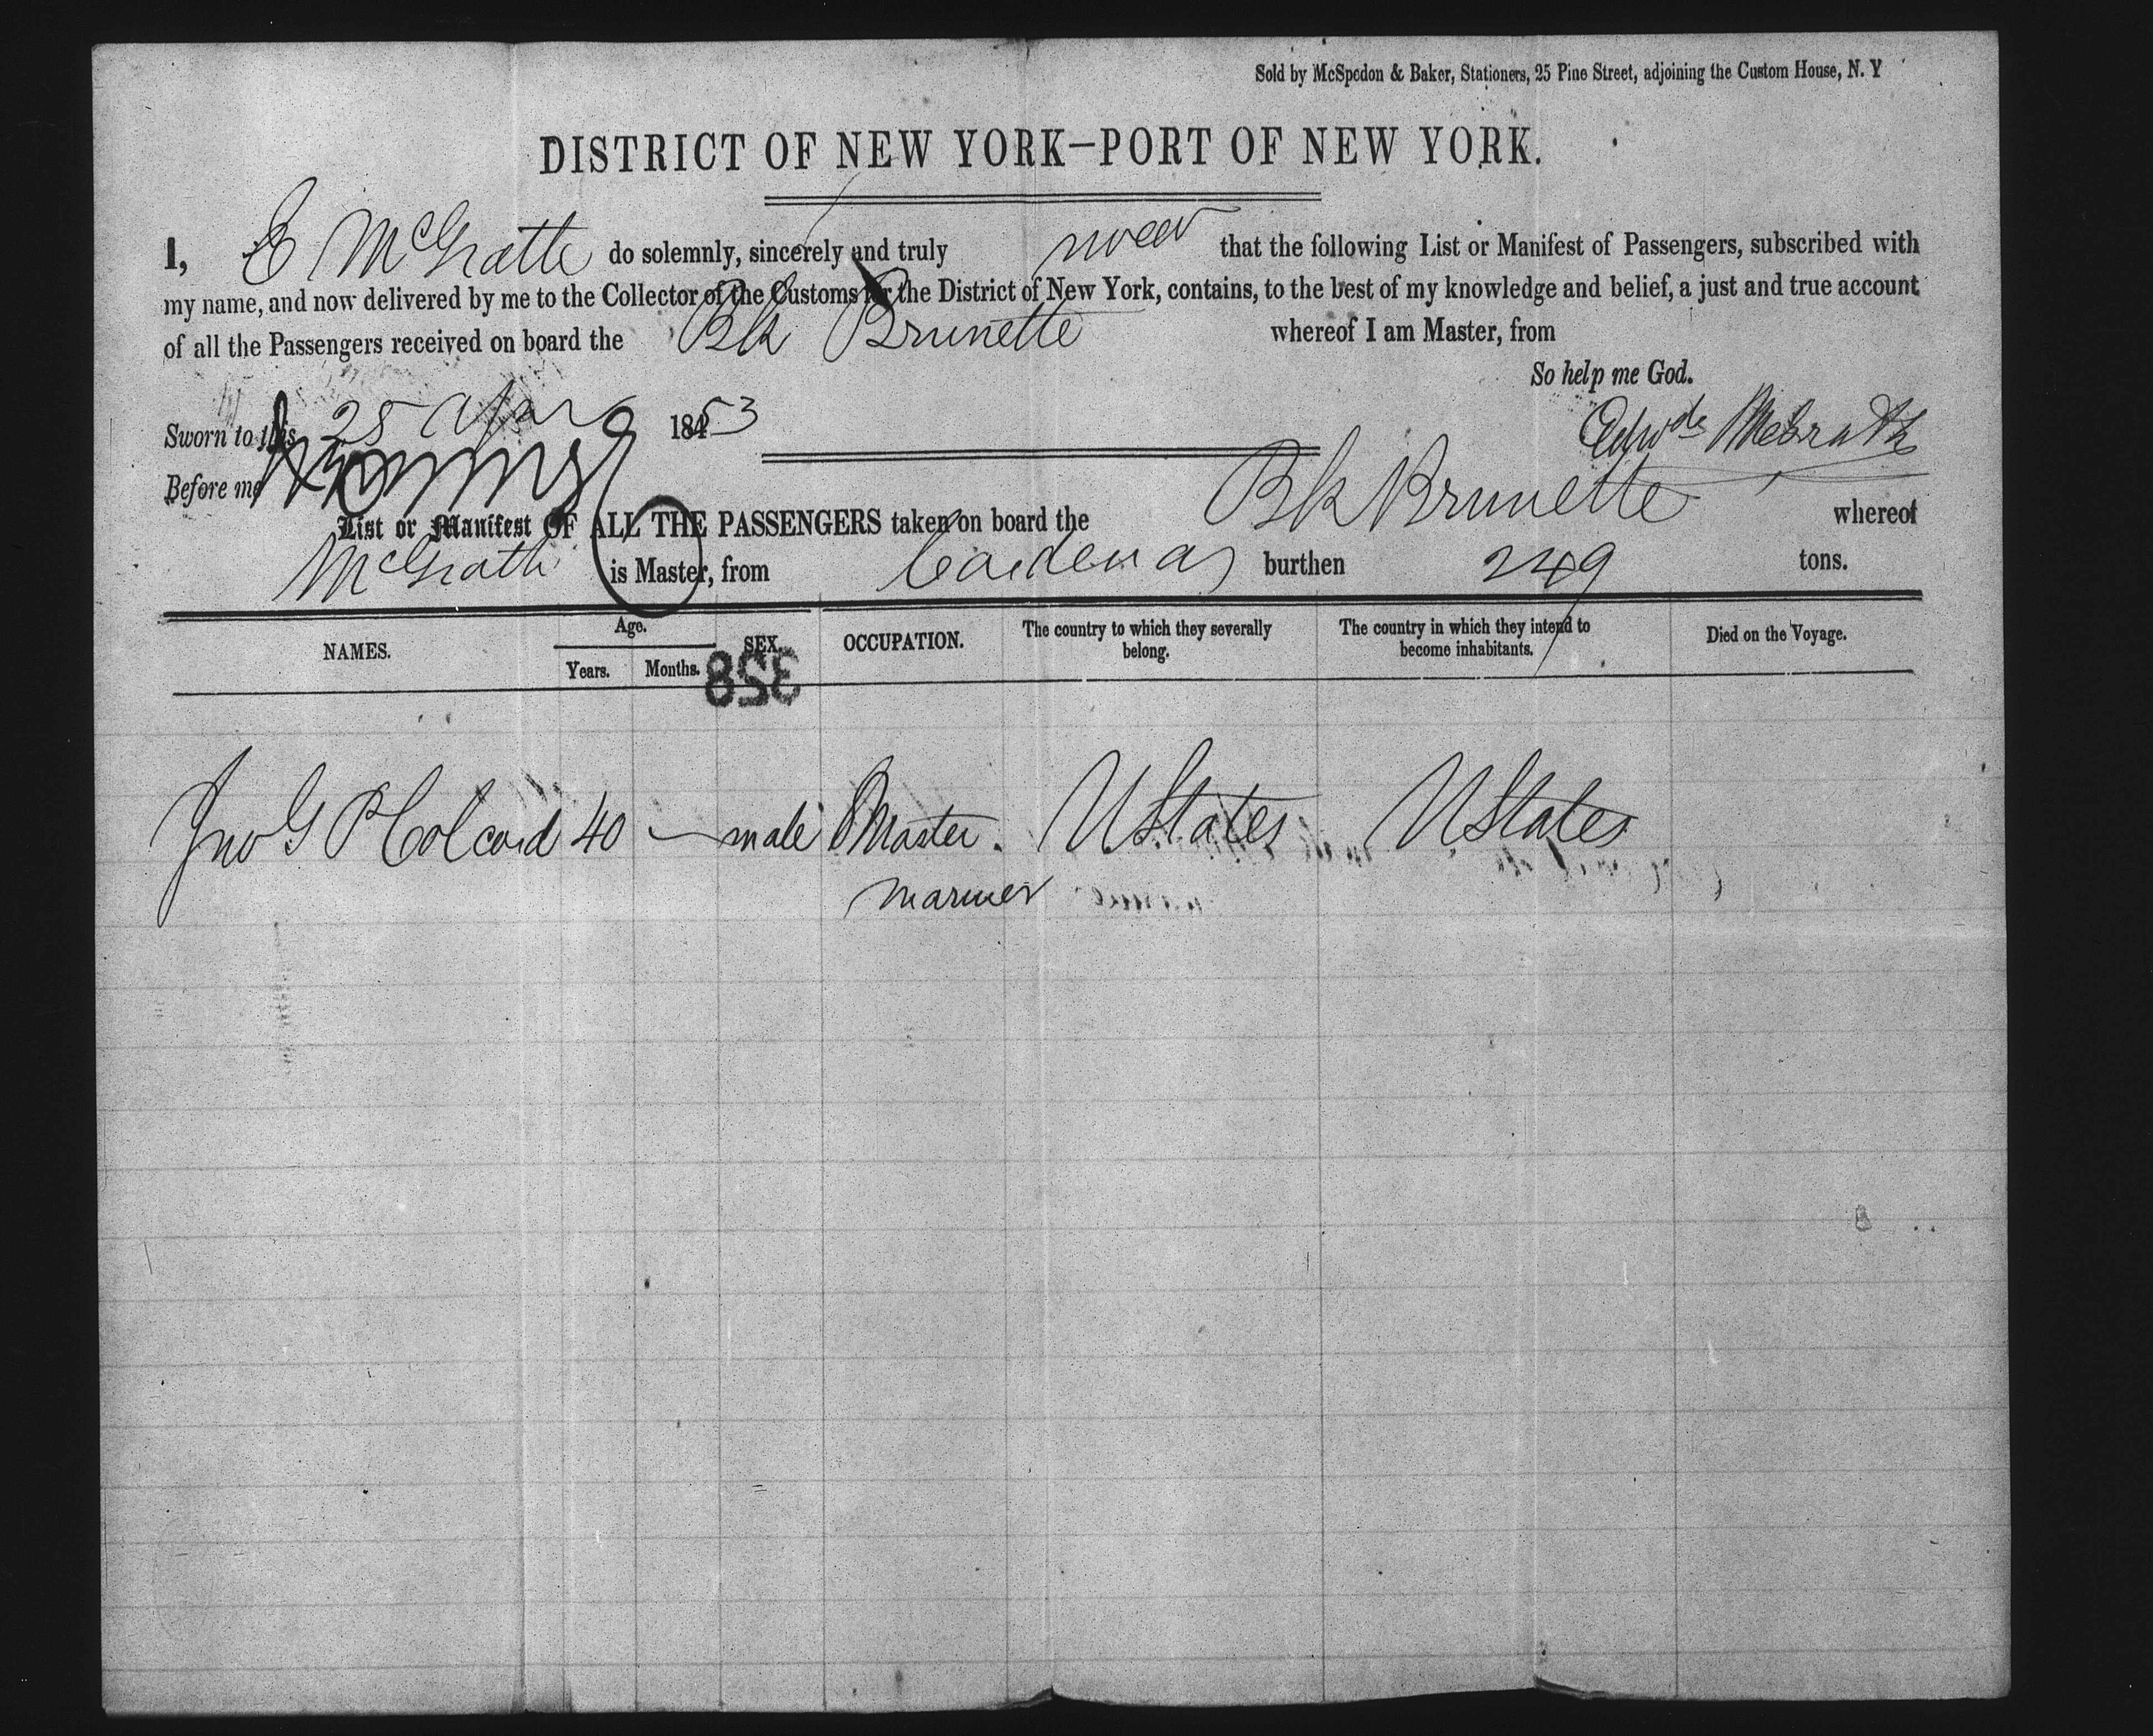 Sold by McSpedon & Baker, Stationers, 25 Pine Street, adjoining the Custom House, N. Y
DISTRICT OF NEW YORK—PORT OF NEW YORK.
I, E McGrath do solemnly, sincerely and truly swear that the following List or Manifest of Passengers, subscribed with
my name, and now delivered by me to the Collector of the Customs for the District of New York, contains, to the best of my knowledge and belief, a just and true account
of all the Passengers received on board the Bk Brunette whereof I am Master, from
So help me God.
Sworn to this 25 Apr 1853
Edwd McGrath
Before me
List or Manifest OF ALL THE PASSENGERS taken on board the Bk Brunette whereof
McGrath is Master, from Cardenas burthen 249 tons.
NAMES. Age. Years. Months. SEX. OCCUPATION. The country to which they severally belong. The country in which they intend to become inhabitants. Died on the Voyage.
358
Jno G P Colcord 40 — male Master. U States U States
mariner